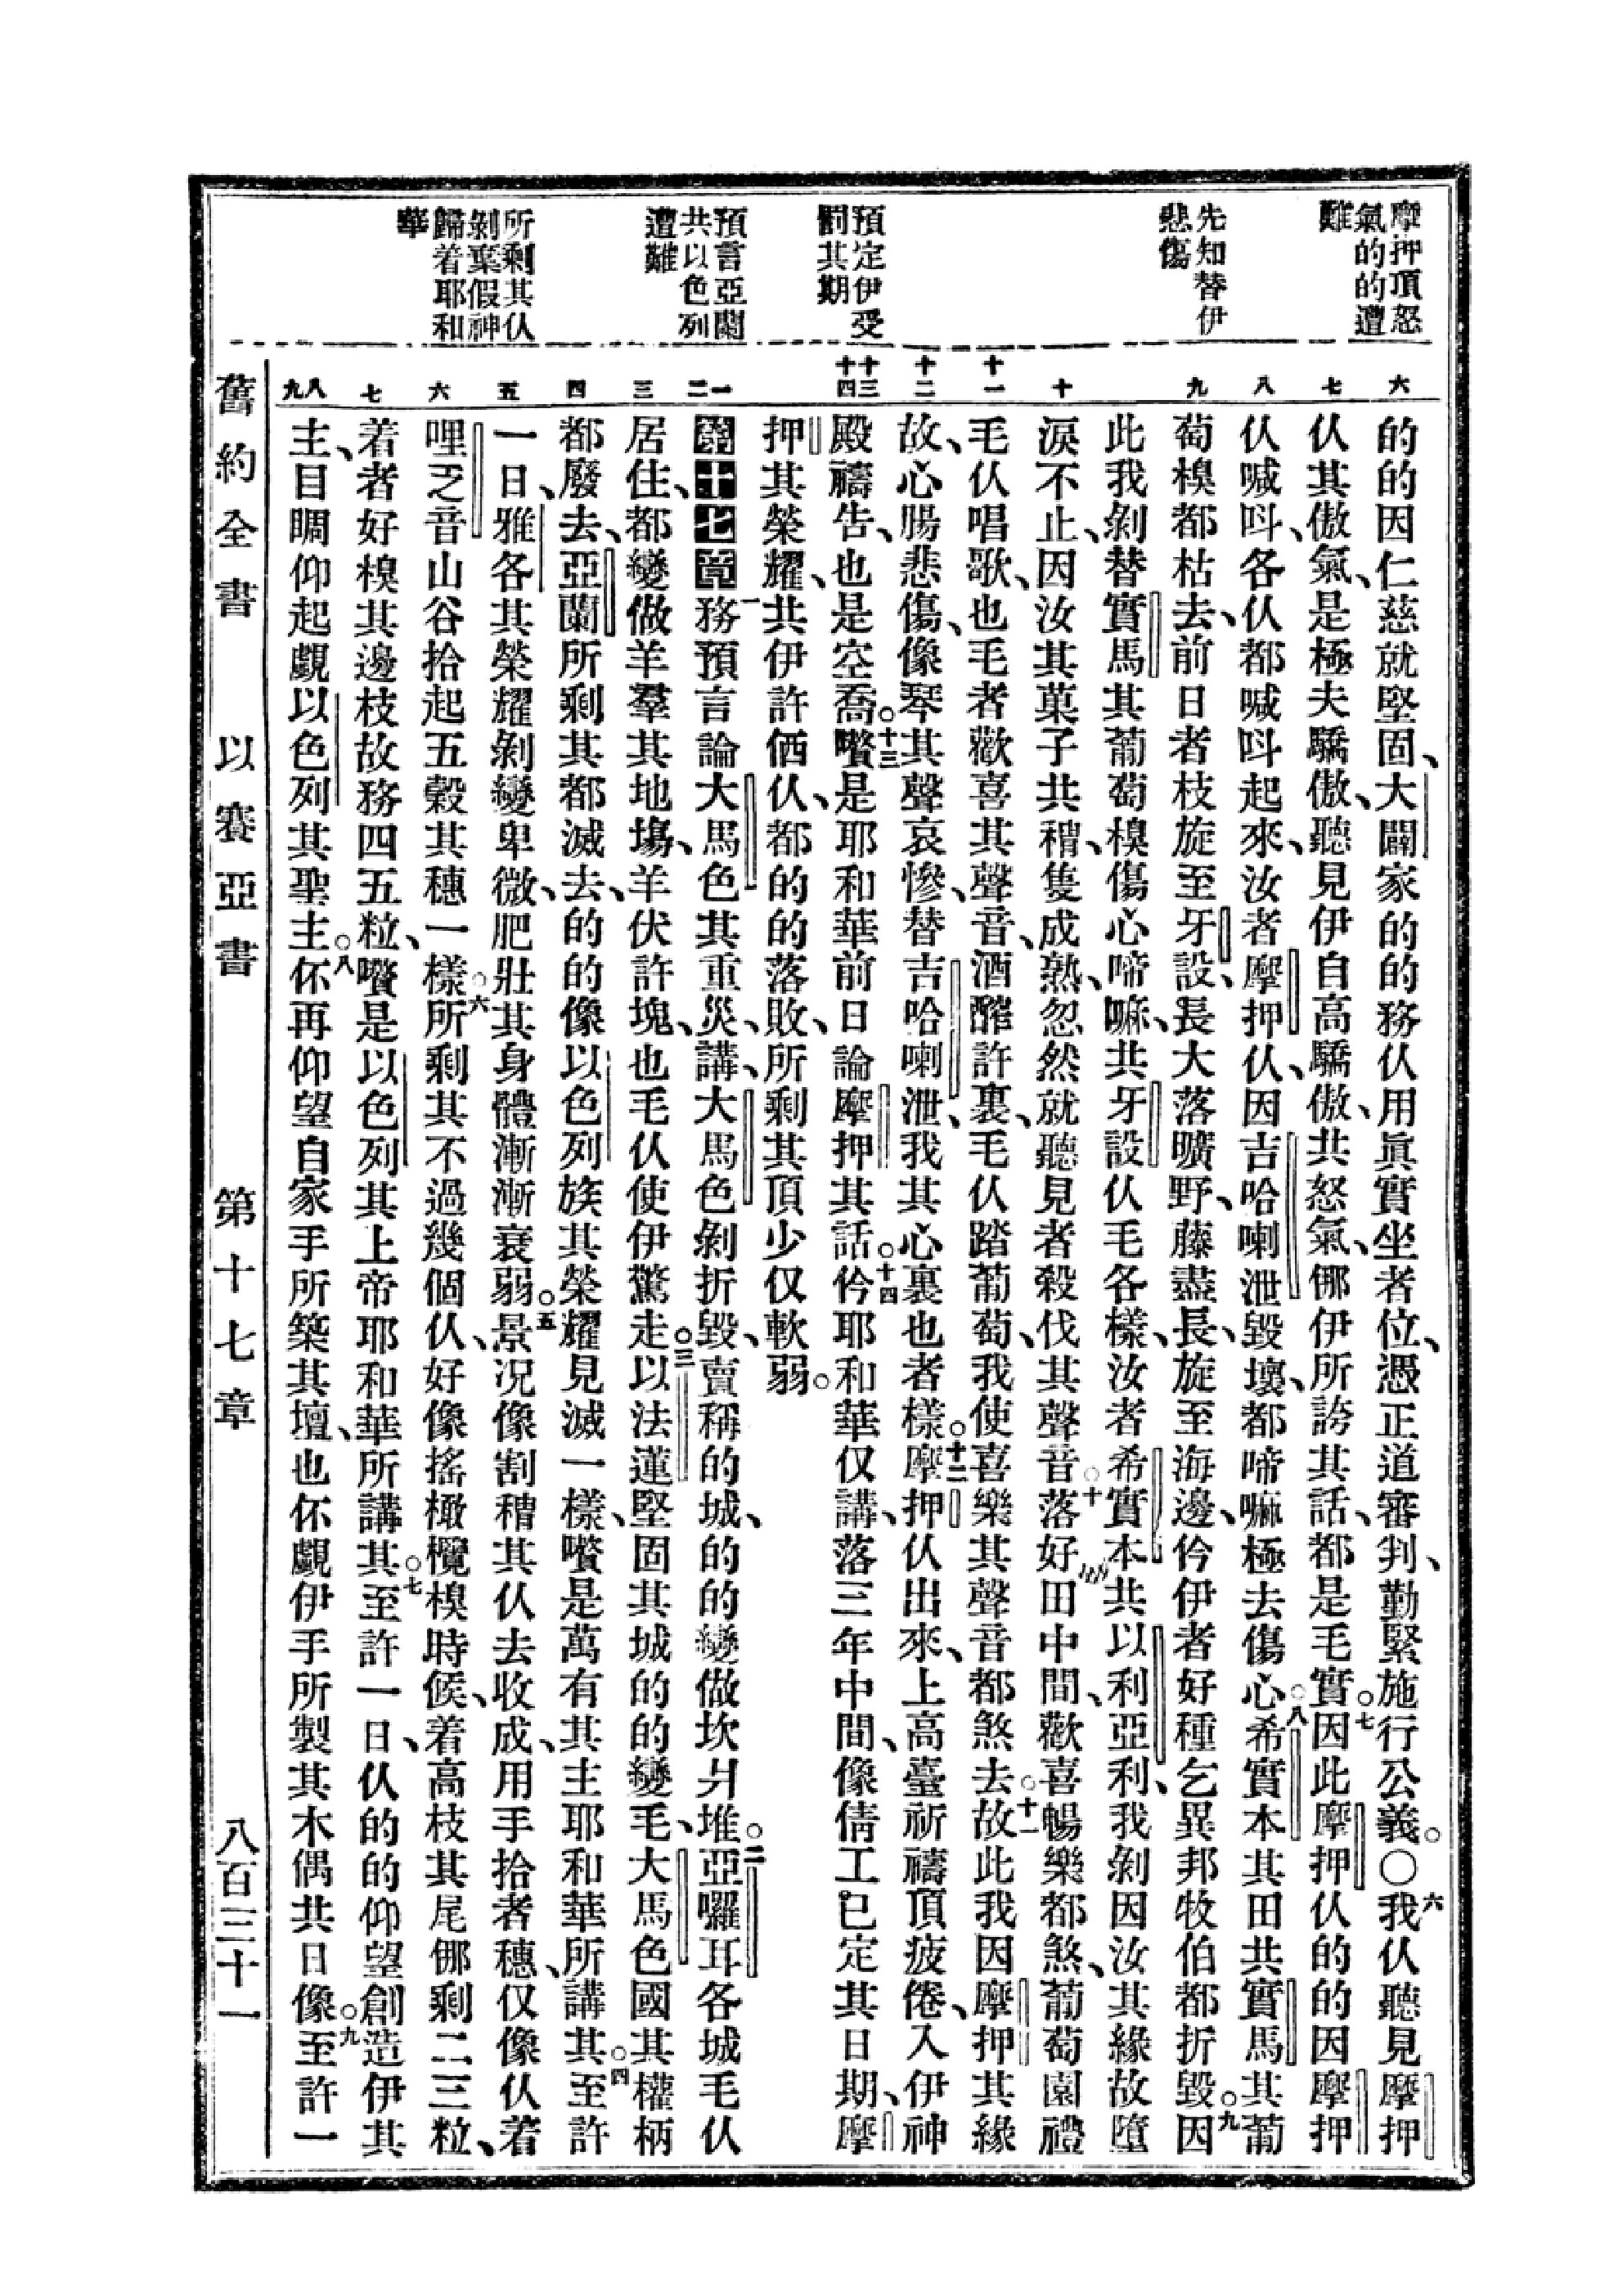 摩押頂怒
氣的的遭
難
先知替伊
悲傷
預定伊受
罰其期
預言亞蘭
共以色列
遭難
所剩其仈
剝棄假神
歸着耶和
華
六
七
八
九
十
十一
十二
十三
十四
一
二
三
四
五
六
七
八
九
的的因仁慈就堅固、大闢家的的務仈用眞實坐者位、憑正道審判、勤緊施行公義。○六我仈聽見摩押
仈其傲氣、是極夫驕傲、聽見伊自高驕傲、共怒氣、㑚伊所誇其話、都是毛實。七因此摩押仈的的因摩押
仈喊呌、各仈都喊呌起來、汝者摩押仈、因吉哈喇泄毀壞、都啼嘛極去傷心。八希實本其田共實馬其葡
萄模都枯去、前日者枝旋至牙設、長大落曠野、藤盡長、旋至海邊、仱伊者好種乞異邦牧伯都折毀。九因
此我剝替實馬其葡萄模傷心啼嘛、共牙設仈毛各樣、汝者希實本共以利亞利、我剝因汝其緣故墮
淚不止、因汝其菓子共䆀、隻成熟、忽然就聽見者殺伐其聲音。十落好田中間、歡喜暢樂都煞、葡萄園禮
毛仈唱歌、也毛者歡喜其聲音、酒醡許裏、毛仈踏葡萄、我使喜樂其聲音都煞去。十一故此我因摩押其緣
故、心腸悲傷、像琴其聲哀慘、替吉哈喇泄、我其心裏也者樣。十二摩押仈出來、上高臺祈禱頂疲倦、入伊神
殿禱告、也是空喬。十三囋是耶和華前日論摩押其話。十四仱耶和華仅講、落三年中間、像倩工已定其日期、摩
押其榮耀、共伊許価仈、都的的落敗、所剩其頂少仅軟弱。
第十七章一務預言論大馬色其重災、講、大馬色剝折毀、賣稱的城、的的變做坎爿堆。二亞囉耳各城毛仈
居住、都變做羊羣其地塲、羊伏許塊、也毛仈使伊驚走。三以法蓮堅固其城的的變毛、大馬色國其權柄
都廢去、亞蘭所剩其都滅去、的的像以色列族其榮耀見滅一樣、囋是萬有其主耶和華所講其。四至許
一日、雅各其榮耀剝變卑微、肥壯其身體漸漸衰弱。五景况像割䆀其仈去收成、用手拾者穗、仅像仈着
哩乏音山谷拾起五穀其穗一樣。六所剩其不過幾個仈、好像搖橄欖模時候、着高枝其尾㑚剩二三粒、
着者好模其邊枝故務四五粒、囋是以色列其上帝耶和華所講其。七至許一日、仈的的仰望創造伊其
主、目瞯仰起覷以色列其聖主。八伓再仰望自家手所築其壇、也伓覷伊手所製其木偶共日像。九至許一
舊約全書　以賽亞書　第十七章　八百三十一